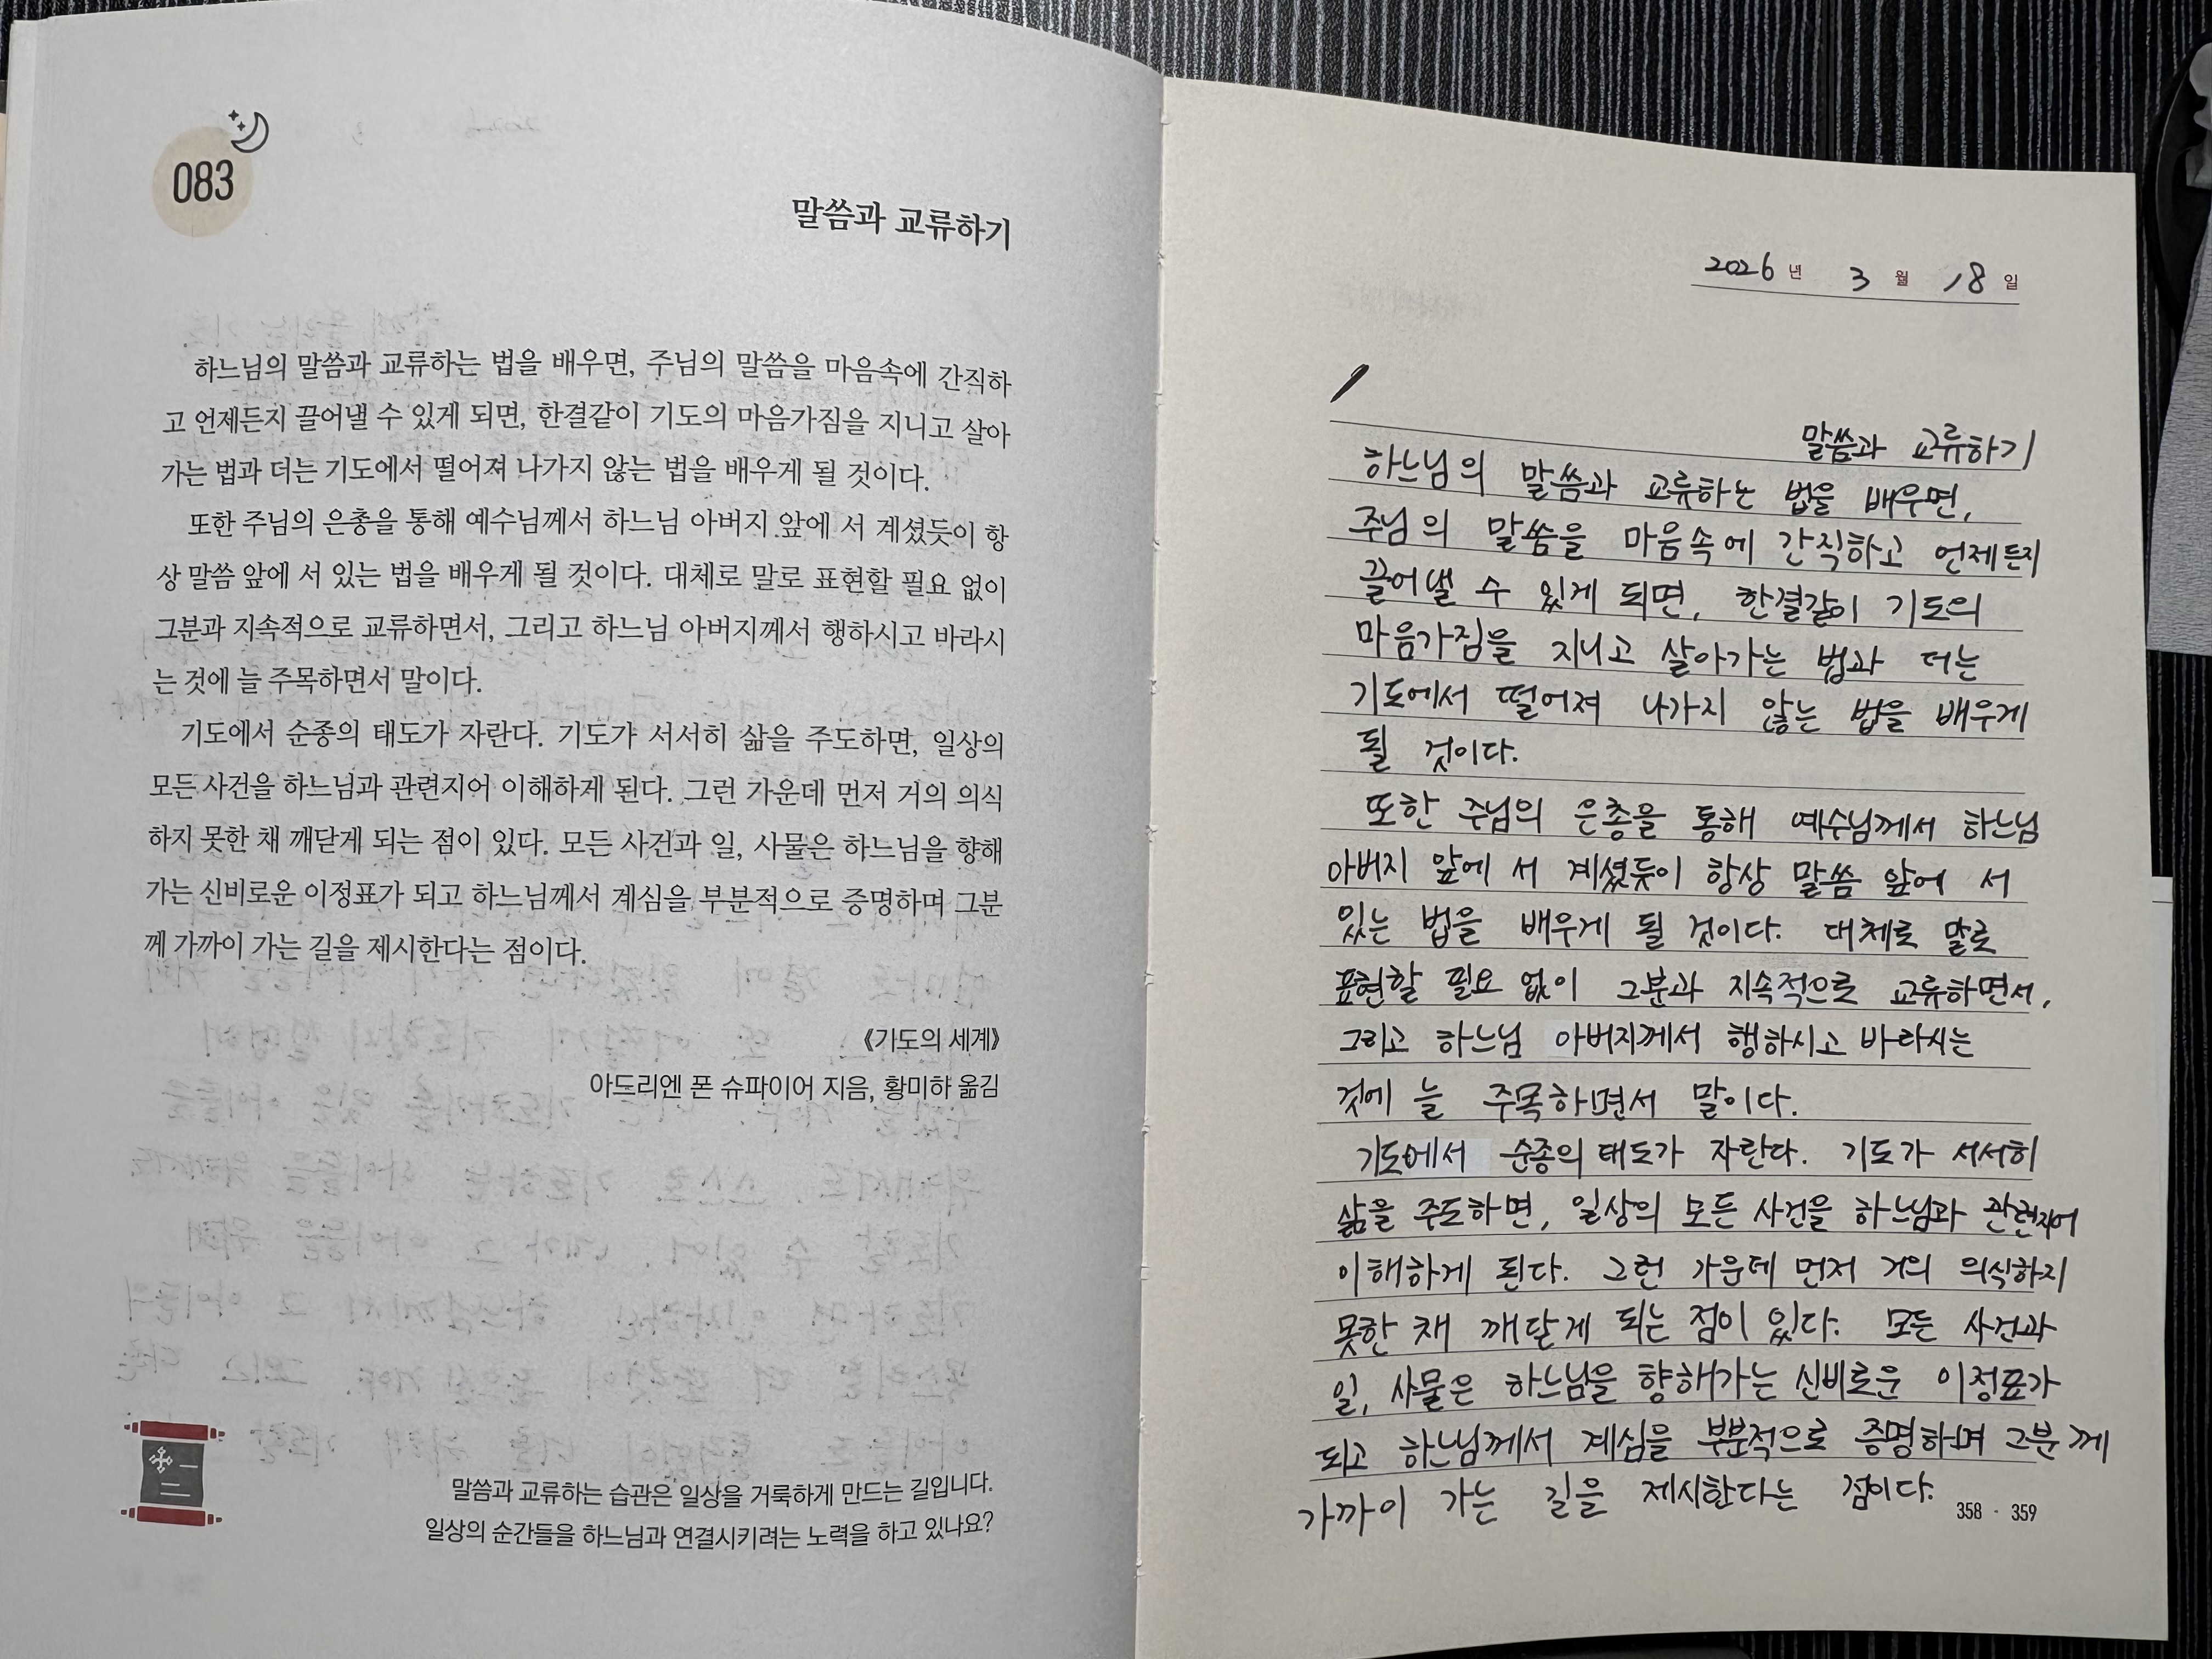 083
말씀과 교류하기
하느님의 말씀과 교류하는 법을 배우면, 주님의 말씀을 마음속에 간직하
고 언제든지 끌어낼 수 있게 되면, 한결같이 기도의 마음가짐을 지니고 살아
가는 법과 더는 기도에서 떨어져 나가지 않는 법을 배우게 될 것이다.
또한 주님의 은총을 통해 예수님께서 하느님 아버지 앞에 서 계셨듯이 항
상 말씀 앞에 서 있는 법을 배우게 될 것이다. 대체로 말로 표현할 필요 없이
그분과 지속적으로 교류하면서, 그리고 하느님 아버지께서 행하시고 바라시
는 것에 늘 주목하면서 말이다.
기도에서 순종의 태도가 자란다. 기도가 서서히 삶을 주도하면, 일상의
모든 사건을 하느님과 관련지어 이해하게 된다. 그런 가운데 먼저 거의 의식
하지 못한 채 깨닫게 되는 점이 있다. 모든 사건과 일, 사물은 하느님을 향해
가는 신비로운 이정표가 되고 하느님께서 계심을 부분적으로 증명하며 그분
께 가까이 가는 길을 제시한다는 점이다.
《기도의 세계》
아드리엔 폰 슈파이어 지음, 황미하 옮김
말씀과 교류하는 습관은 일상을 거룩하게 만드는 길입니다.
일상의 순간들을 하느님과 연결시키려는 노력을 하고 있나요?
2026 년 3 월 18 일
말씀과 교류하기
하느님의 말씀과 교류하는 법을 배우면,
주님의 말씀을 마음속에 간직하고 언제든지
끌어낼 수 있게 되면, 한결같이 기도의
마음가짐을 지니고 살아가는 법과 더는
기도에서 떨어져 나가지 않는 법을 배우게
될 것이다.
또한 주님의 은총을 통해 예수님께서 하느님
아버지 앞에 서 계셨듯이 항상 말씀 앞에 서
있는 법을 배우게 될 것이다. 대체로 말로
표현할 필요 없이 그분과 지속적으로 교류하면서,
그리고 하느님 아버지께서 행하시고 바라시는
것에 늘 주목하면서 말이다.
기도에서 순종의 태도가 자란다. 기도가 서서히
삶을 주도하면, 일상의 모든 사건을 하느님과 관련지어
이해하게 된다. 그런 가운데 먼저 거의 의식하지
못한 채 깨닫게 되는 점이 있다. 모든 사건과
일, 사물은 하느님을 향해가는 신비로운 이정표가
되고 하느님께서 계심을 부분적으로 증명하며 그분께
가까이 가는 길을 제시한다는 점이다.
358 - 359